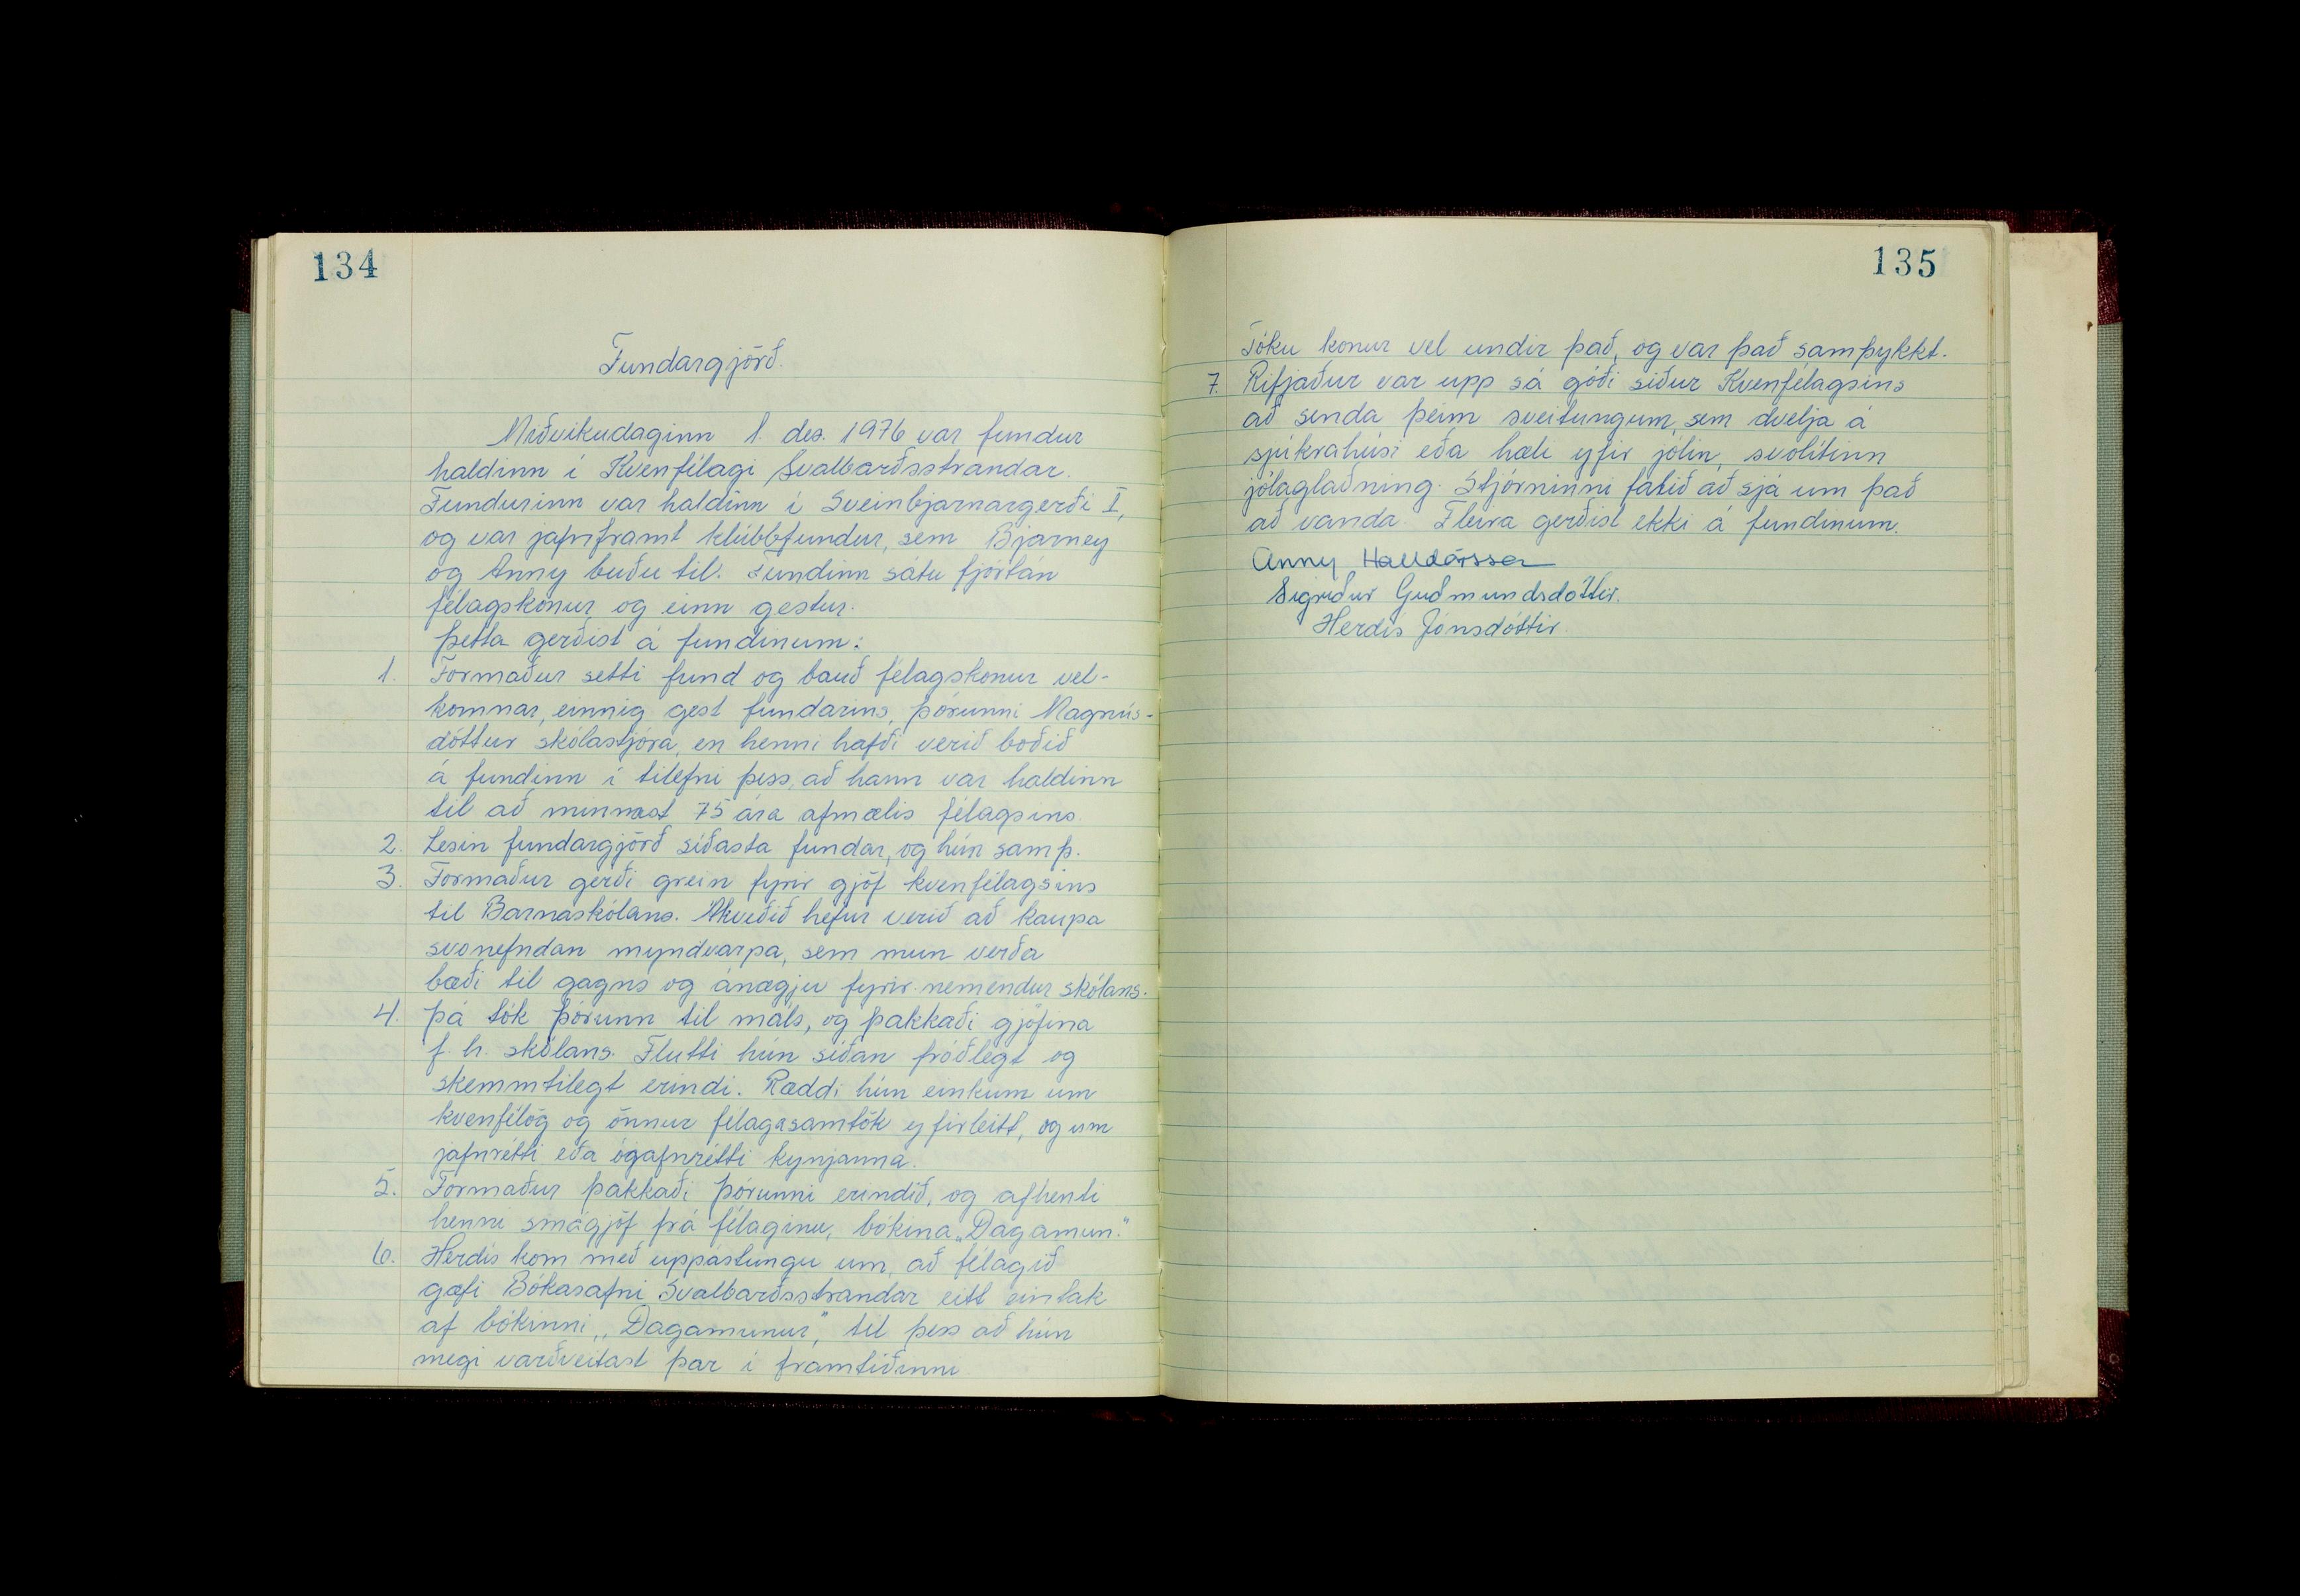 134
Fundargjörð.
Miðvikudaginn 1. des. 1976 var fundur
haldinn í Kvenfélagi Svalbarðsstrandar.
Fundurinn var haldinn í Sveinbjarnargerði I,
og var jafnframt klúbbfundur, sem Bjarney
og Anny buðu til. Fundinn sátu fjórtán
félagskonur og einn gestur.
Þetta gerðist á fundinum:
1. Formaður setti fund og bauð félagskonur vel-
komnar, einnig gest fundarins, Þórunni Magnús-
dóttur skólastjóra, en henni hafði verið boðið
á fundinn í tilefni þess, að hann var haldinn
til að minnast 75 ára afmælis félagsins.
2. Lesin fundargjörð síðasta fundar, og hún samþ.
3. Formaður gerði grein fyrir gjöf kvenfélagsins
til Barnaskólans. Ákveðið hefur verið að kaupa
svonefndan myndvarpa, sem mun verða
bæði til gagns og ánægju fyrir nemendur skólans.
4. Þá tók Þórunn til máls, og þakkaði gjöfina
f. h. skólans. Flutti hún síðan fróðlegt og
skemmtilegt erindi. Ræddi hún einkum um
kvenfélög og önnur félagasamtök yfirleitt, og um
jafnrétti eða ójafnrétti kynjanna.
5. Formaður þakkaði Þórunni erindið, og afhenti
henni smágjöf frá félaginu, bókina „Dagamun."
6. Herdís kom með uppástungu um, að félagið
gæfi Bókasafni Svalbarðsstrandar eitt eintak
af bókinni „Dagamunur", til þess að hún
megi varðveitast þar í framtíðinni.
135
Tóku konur vel undir það, og var það samþykkt.
7. Rifjaður var upp sá góði siður Kvenfélagsins
að senda þeim sveitungum, sem dvelja á
sjúkrahúsi eða hæli yfir jólin, svolítinn
jólaglaðning. Stjórninni falið að sjá um það
að vanda. Fleira gerðist ekki á fundinum.
Anny Halldórsson
Sigríður Guðmundsdóttir.
Herdís Jónsdóttir.